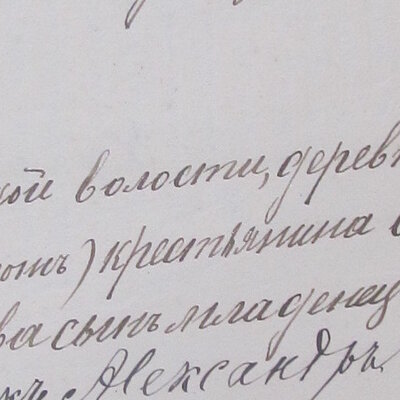 кой волости, дерев
онъ) крестьянина
ва сынъ младенец
Александръ